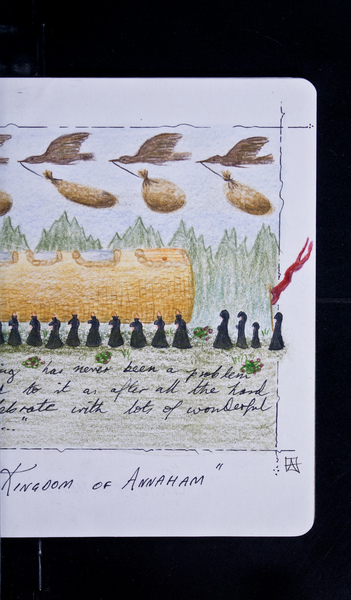 ng has never been a problem
d to it as after all the hard
lebrate with lots of wonderful
..."
KINGDOM OF ANNAHAM"